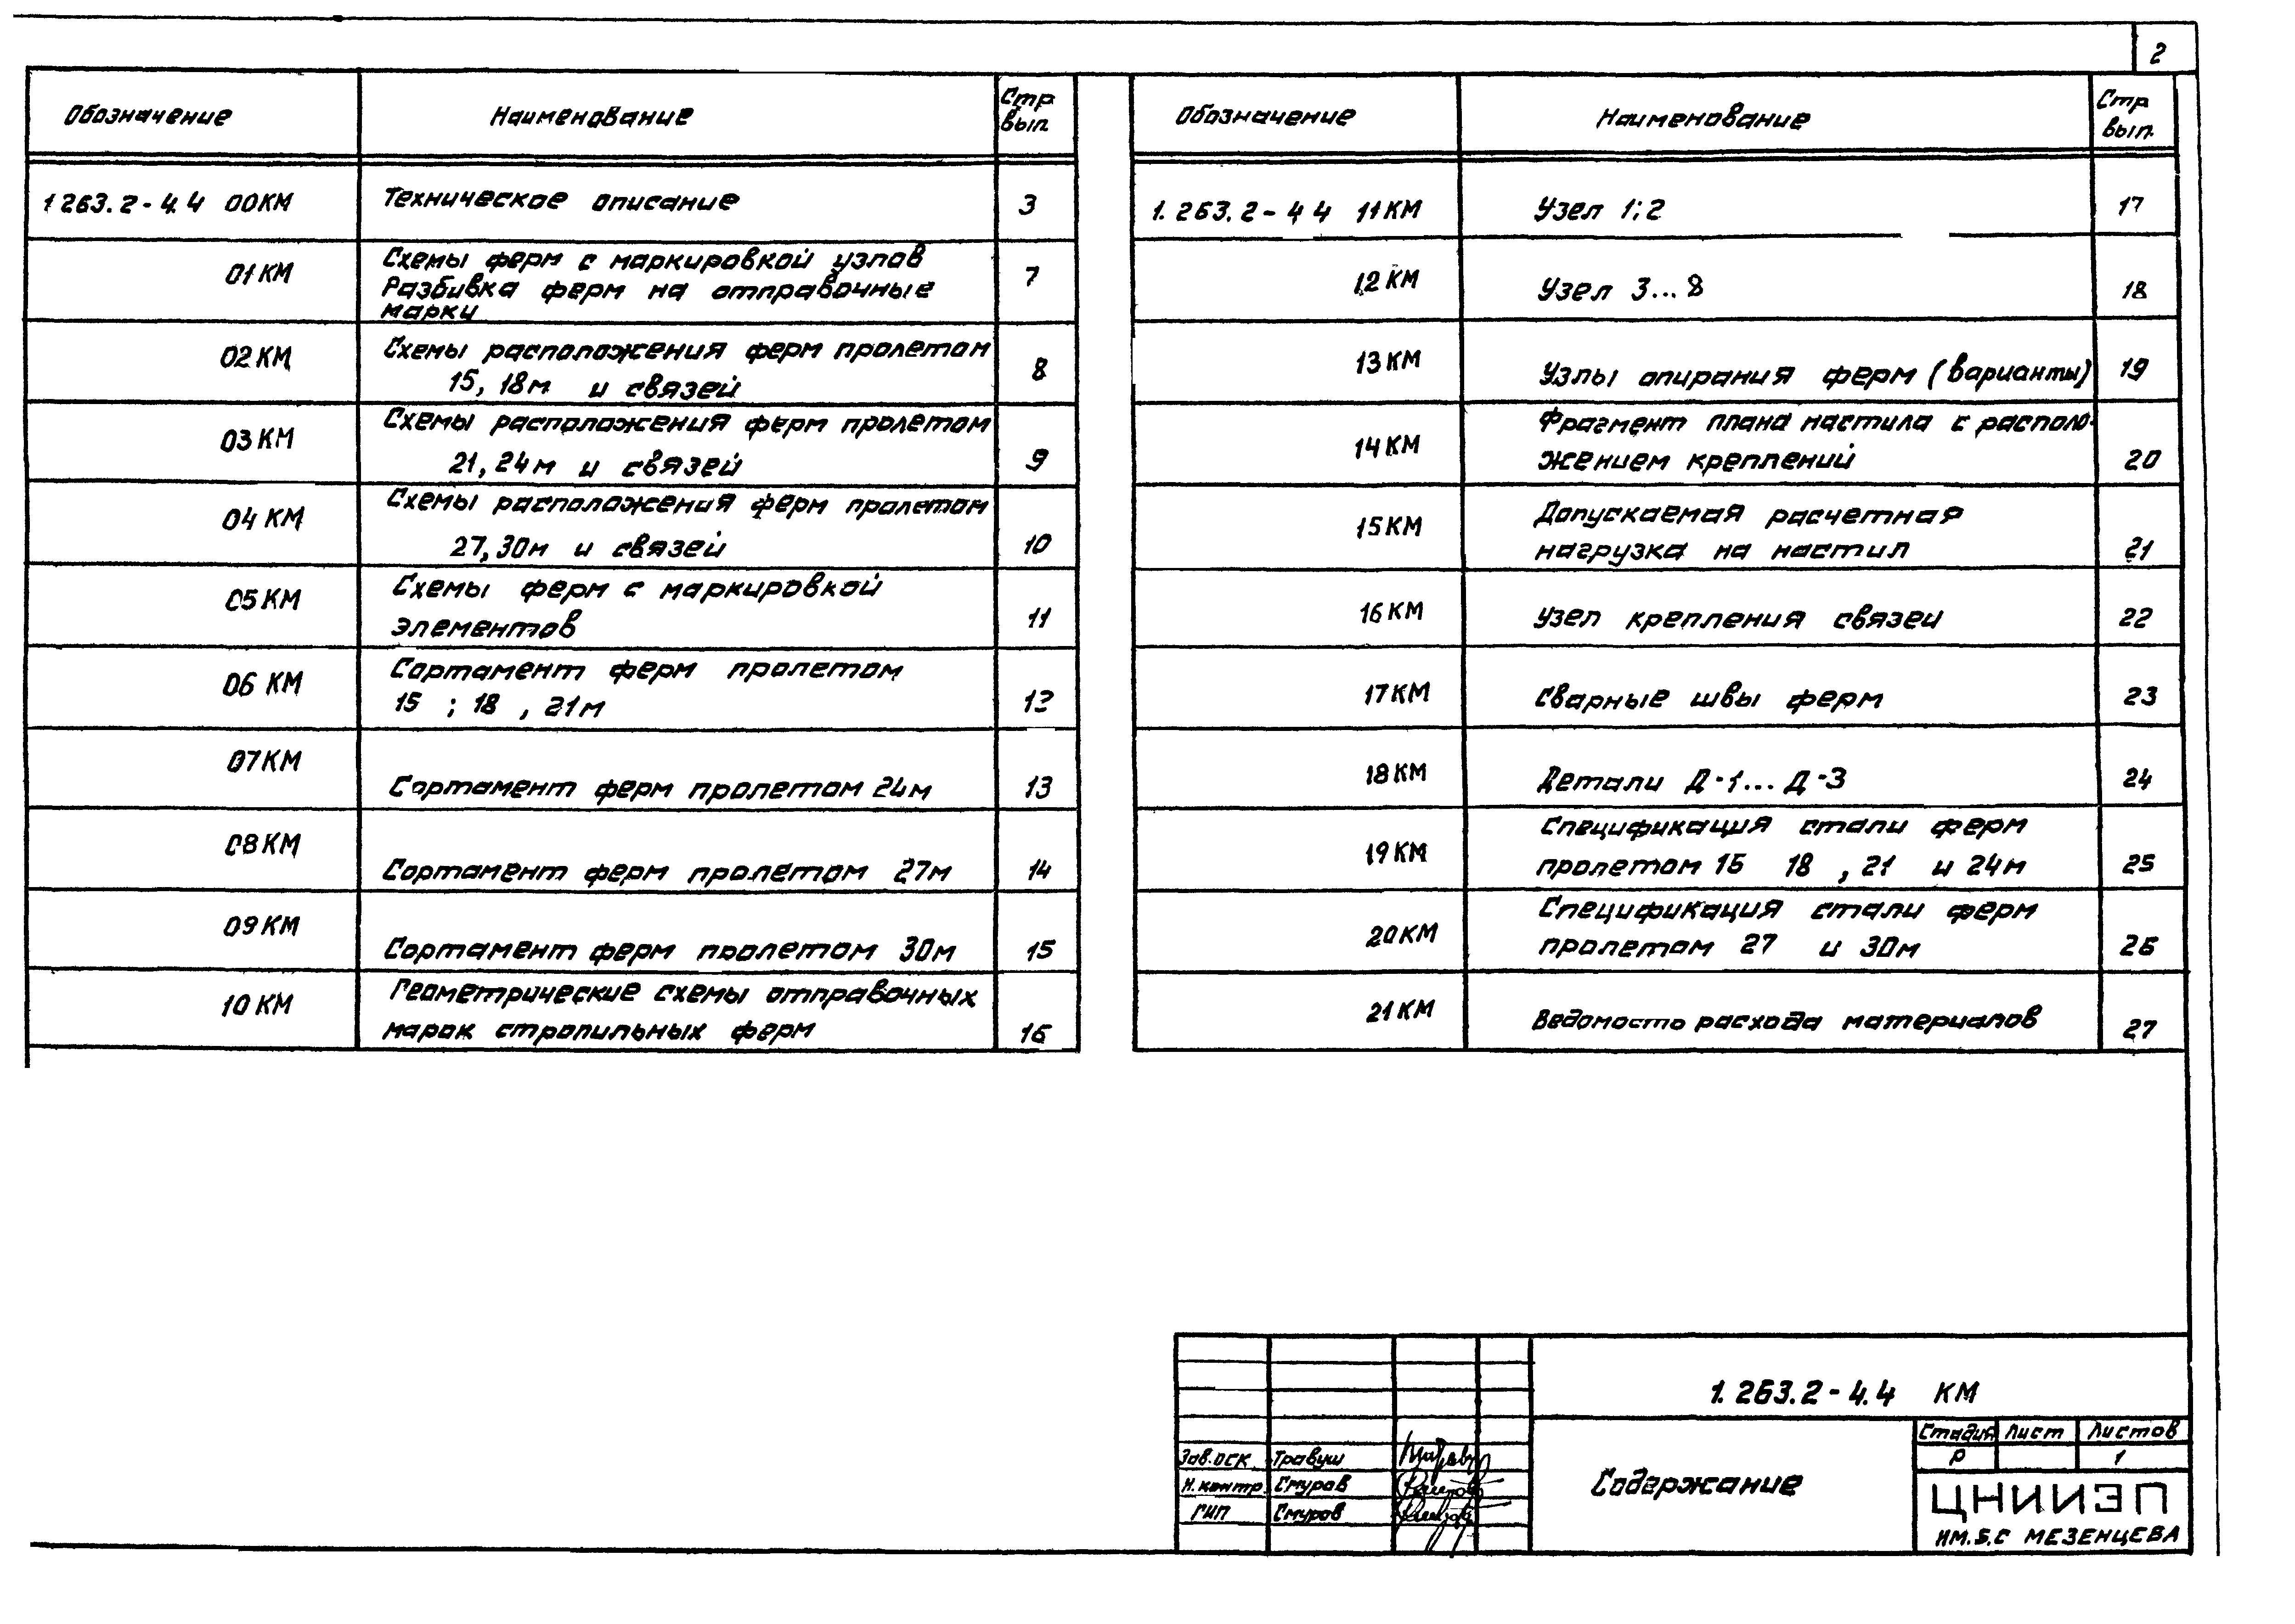 2
Обозначение Наименование Стр вып
1 263.2-4.4 00КМ Техническое описание 3
01КМ Схемы ферм с маркировкой узлов
Разбивка ферм на отправочные
марки 7
02КМ Схемы расположения ферм пролетом
15, 18м и связей 8
03КМ Схемы расположения ферм пролетом
21, 24м и связей 9
04КМ Схемы расположения ферм пролетом
27, 30м и связей 10
05КМ Схемы ферм с маркировкой
элементов 11
06 КМ Сортамент ферм пролетом
15 ; 18 , 21м 12
07КМ Сортамент ферм пролетом 24м 13
08КМ Сортамент ферм пролетом 27м 14
09КМ Сортамент ферм пролетом 30м 15
10КМ Геометрические схемы отправочных
марок стропильных ферм 16
Обозначение Наименование Стр вып.
1. 263.2-4 4 11КМ Узел 1; 2 17
12КМ Узел 3...8 18
13КМ Узлы опирания ферм (варианты) 19
14КМ Фрагмент плана настила с располо-
жением креплений 20
15КМ Допускаемая расчетная
нагрузка на настил 21
16КМ Узел крепления связей 22
17КМ Сварные швы ферм 23
18КМ Детали Д-1...Д-3 24
19КМ Спецификация стали ферм
пролетом 15 18 , 21 и 24м 25
20КМ Спецификация стали ферм
пролетом 27 и 30м 26
21КМ Ведомость расхода материалов 27
1. 263.2-4.4 КМ
Зав.ОСК Травуш
Н.контр. Смуров
ГИП Смуров
Содержание
Стадия Лист Листов
Р 1
ЦНИИЭП
ИМ. Б.С МЕЗЕНЦЕВА